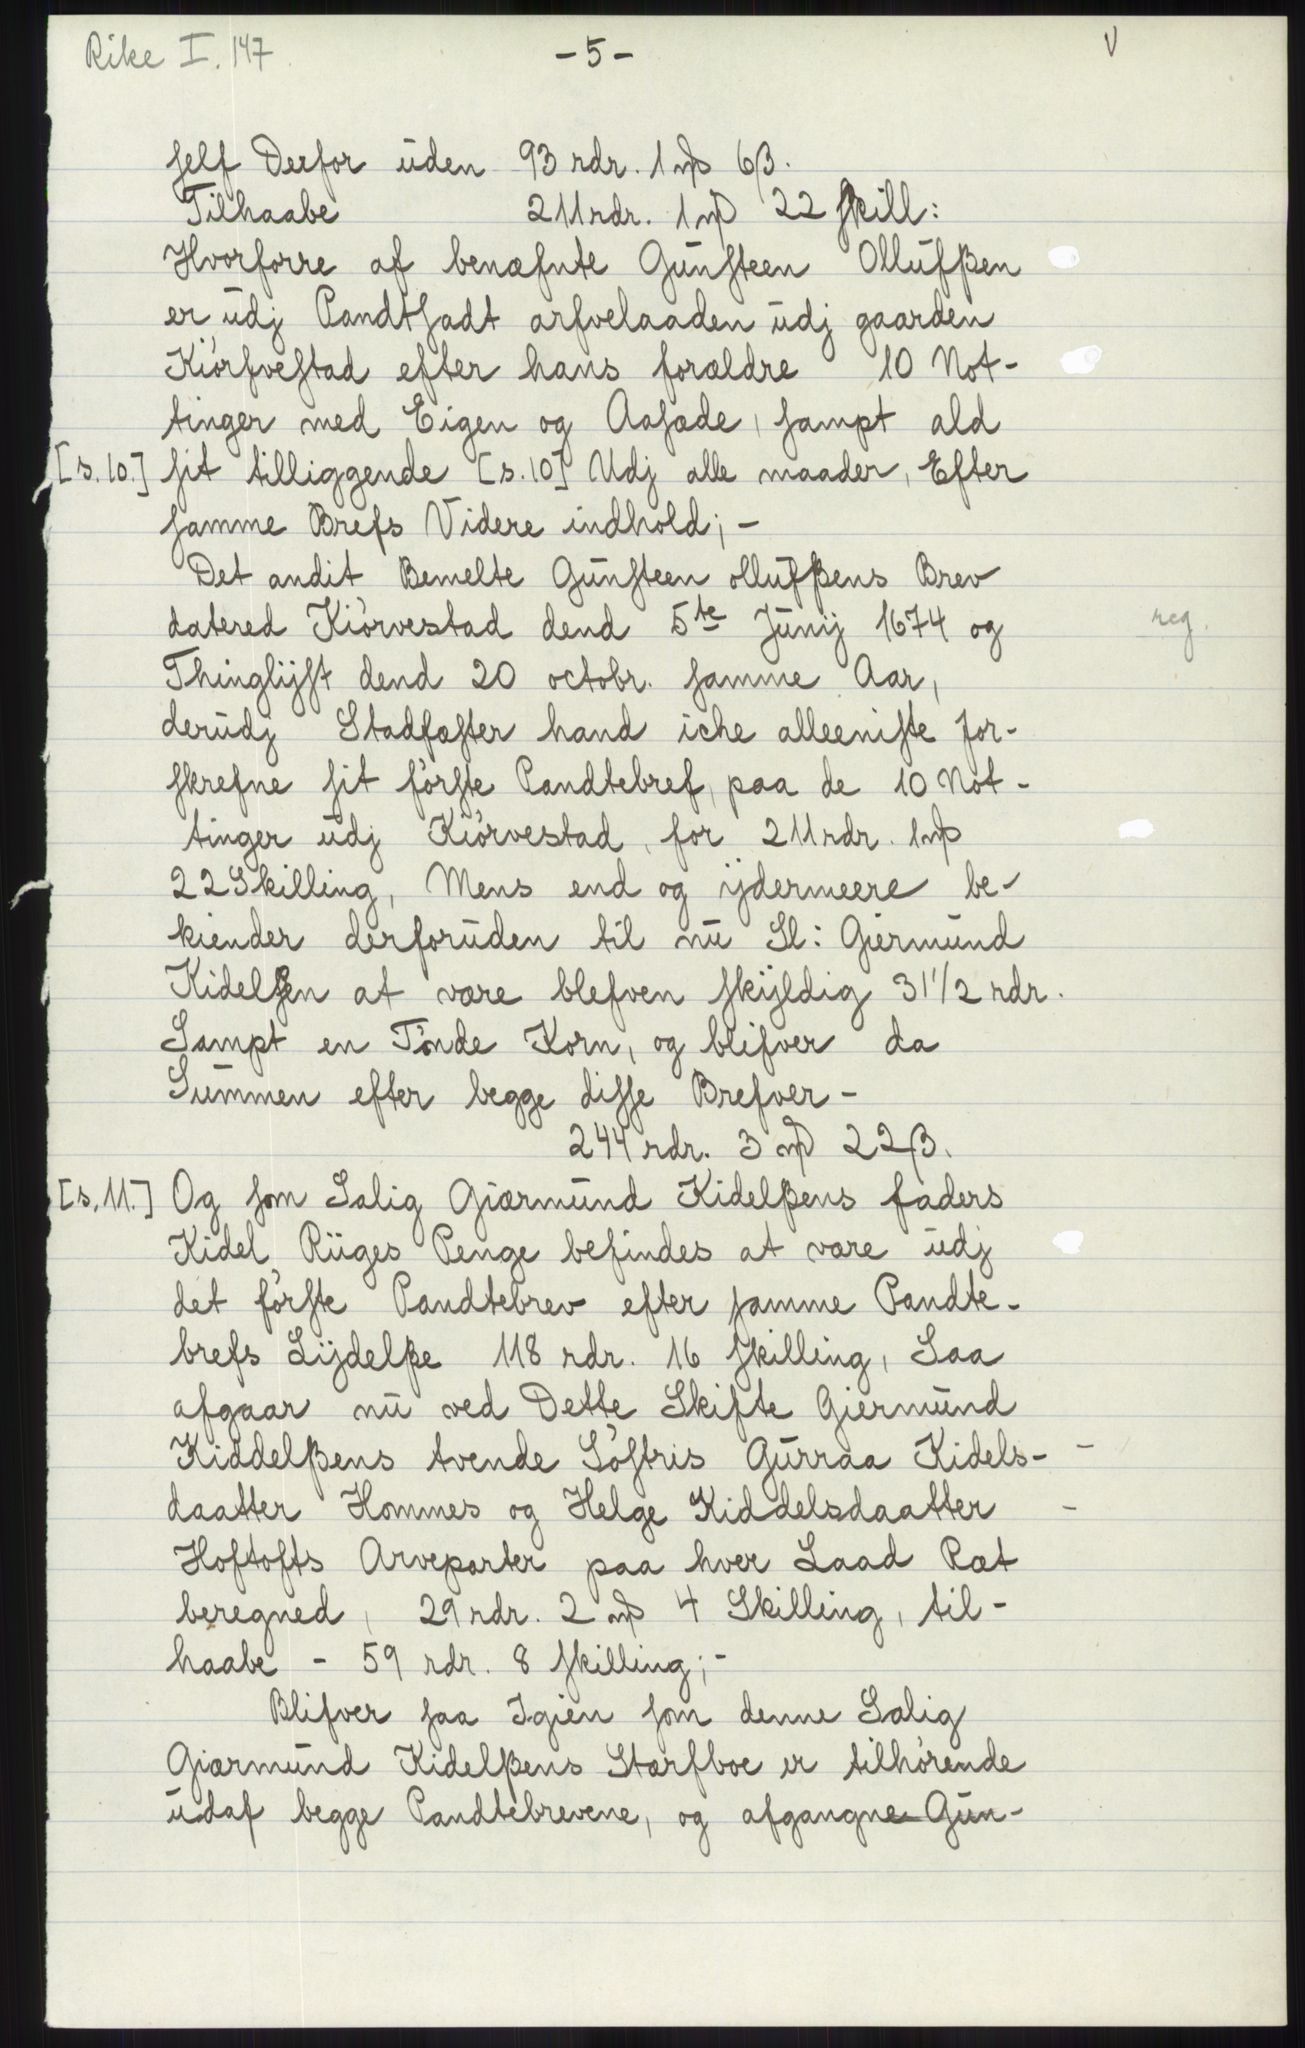 Rike I. 147.
- 5 -
V
self Derfor uden 93 rdr. 1 mȹ 6 β.
Tilhaabe 211 rdr. 1 mȹ 22 skill:
Hvorforre af benæfnte Gunsteen Ollufβen
er udj Pandtsadt arfvelaaden udj gaarden
Kiörfvestad efter hans forældre 10 Not-
tinger med Eigen og Aasæde, sampt ald
[s. 10.] sit tilliggende [s. 10] Udj alle maader, Efter
samme Brefs Videre indhold; -
Det andit Bemelte Gunsteen ollufβens Brev
datered Kiörvestad dend 5te Junij 1674 og
reg.
Thinglijst dend 20 octobr. samme Aar,
derudj Stadfæster hand iche alleeniste for-
skrefne sit förste Pandtebref, paa de 10 Not-
tinger udj Kiörvestad, for 211 rdr. 1 mȹ
22 Skilling, Mens end og ijdermeere be-
kiender derforuden til nu Sl: Giermund
Kidelβen at være blefven skijldig 31 1/2 rdr.
Sampt en Tönde Korn, og blifver da
Summen efter begge disse Brefver -
244 rdr. 3 mȹ 22 β.
[s. 11.] Og som Salig Giærmund Kidelβens faders
Kidel Rüges Penge befindes at være udj
det förste Pandtebrev efter samme Pandte-
brefs Lijdelβe 118 rdr. 16 skilling, Saa
afgaar nu ved Dette Skifte Giermund
Kiddelβens tvende Söstris Gurraa Kidels-
daatter Hommes og Helge Kiddelsdaatter
Hoftofts Arveparter paa hver Laad Ræt
beregned, 29 rdr. 2 mȹ 4 Skilling, til-
haabe - 59 rdr. 8 skilling; -
Blifver saa Igien som denne Salig
Giærmund Kidelβens Stærfboe er tilhörende
udaf begge Pandtebrevene, og afgangne Gun-